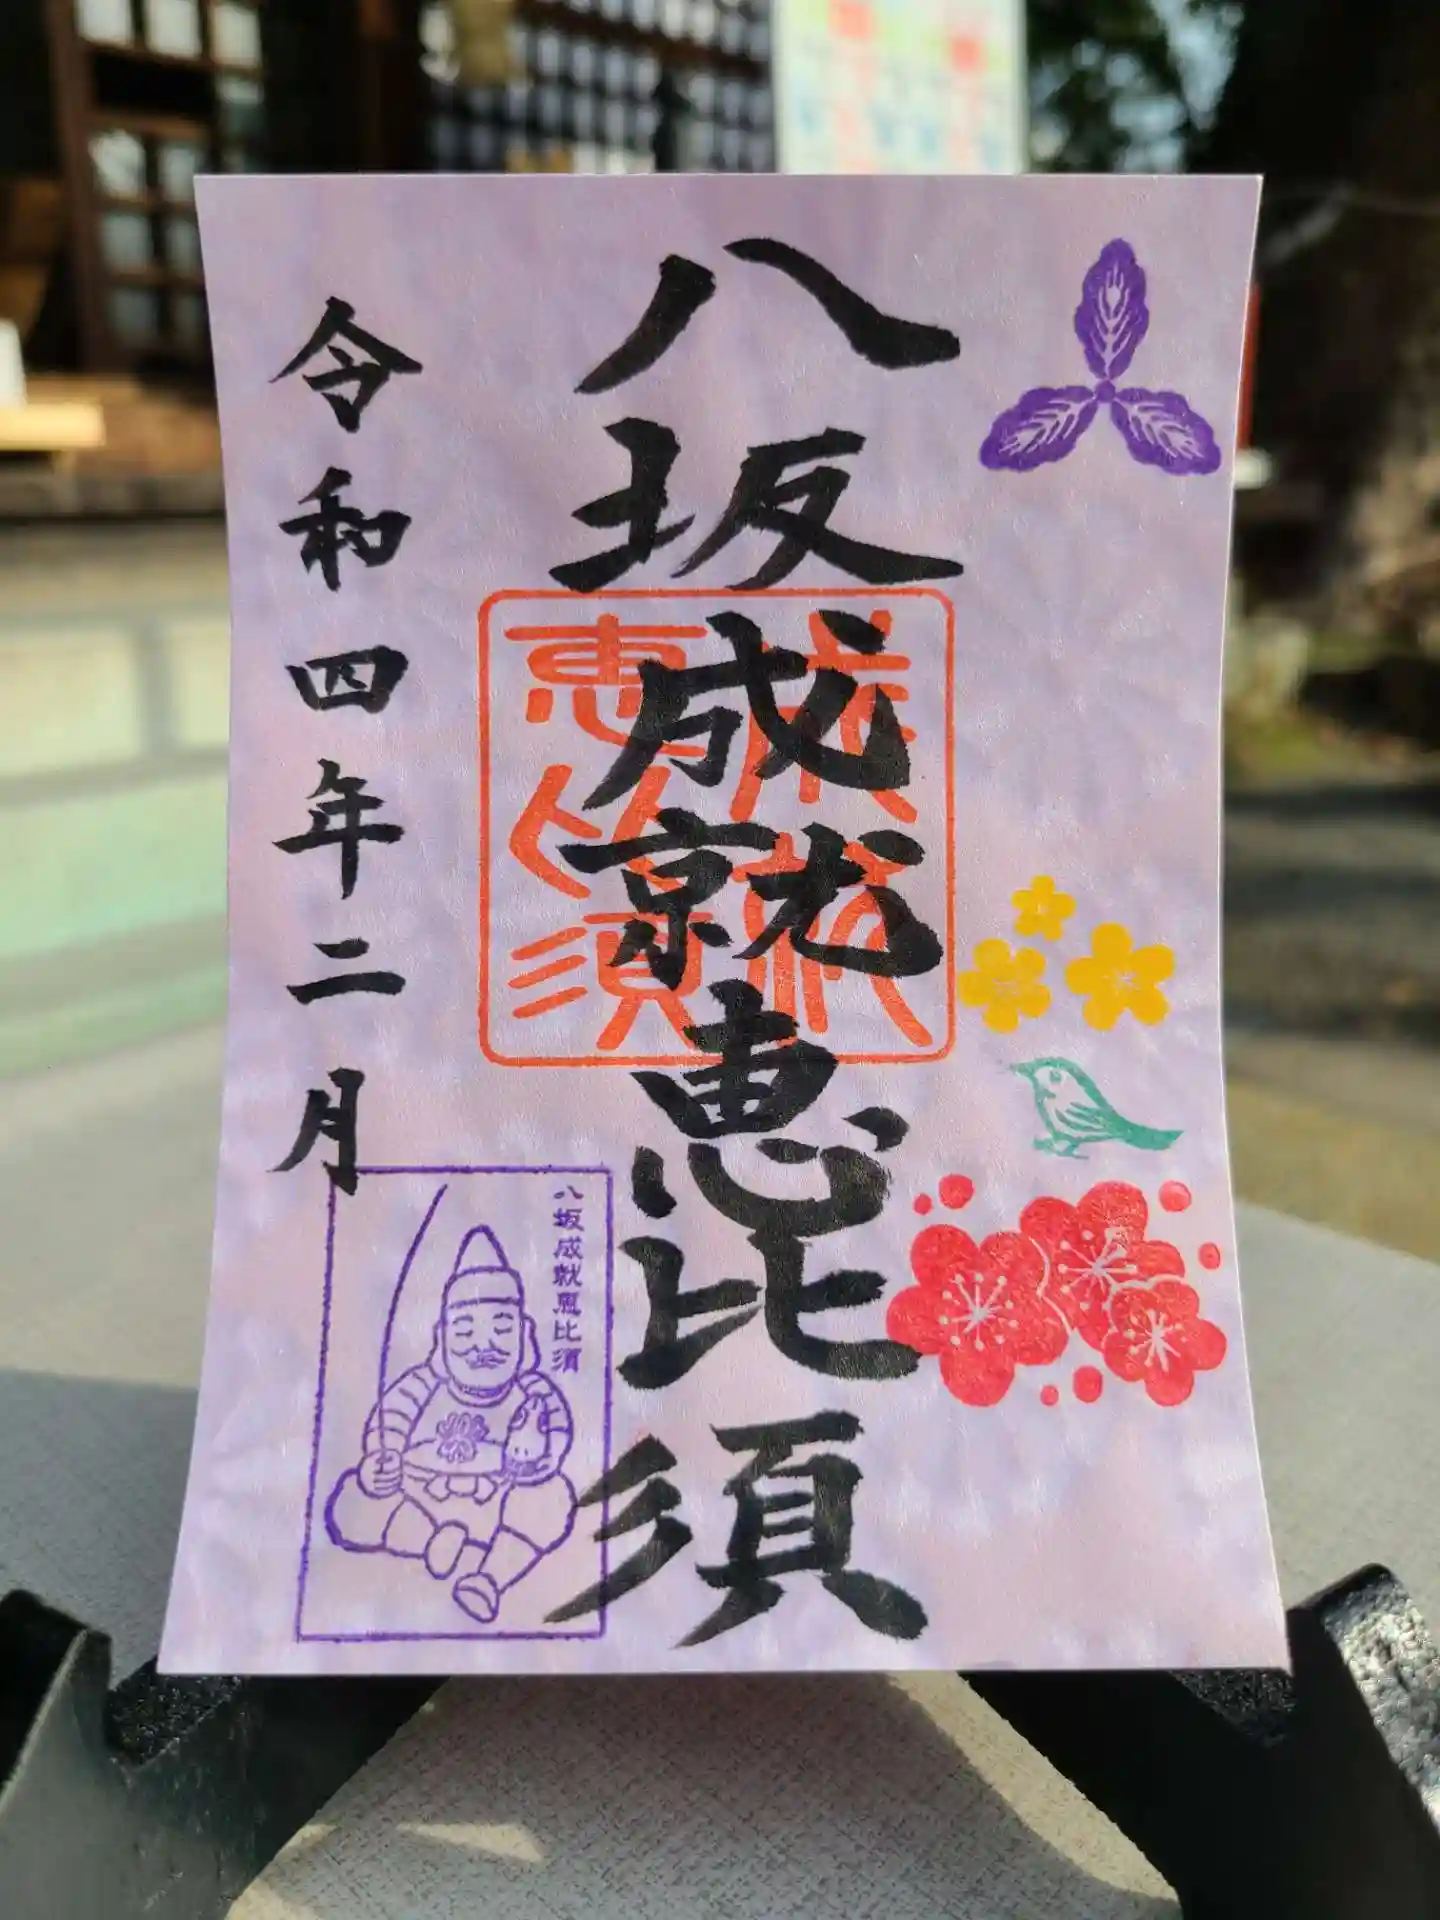 八坂成就恵比須
成就
恵比須
令和四年二月
八坂成就恵比須